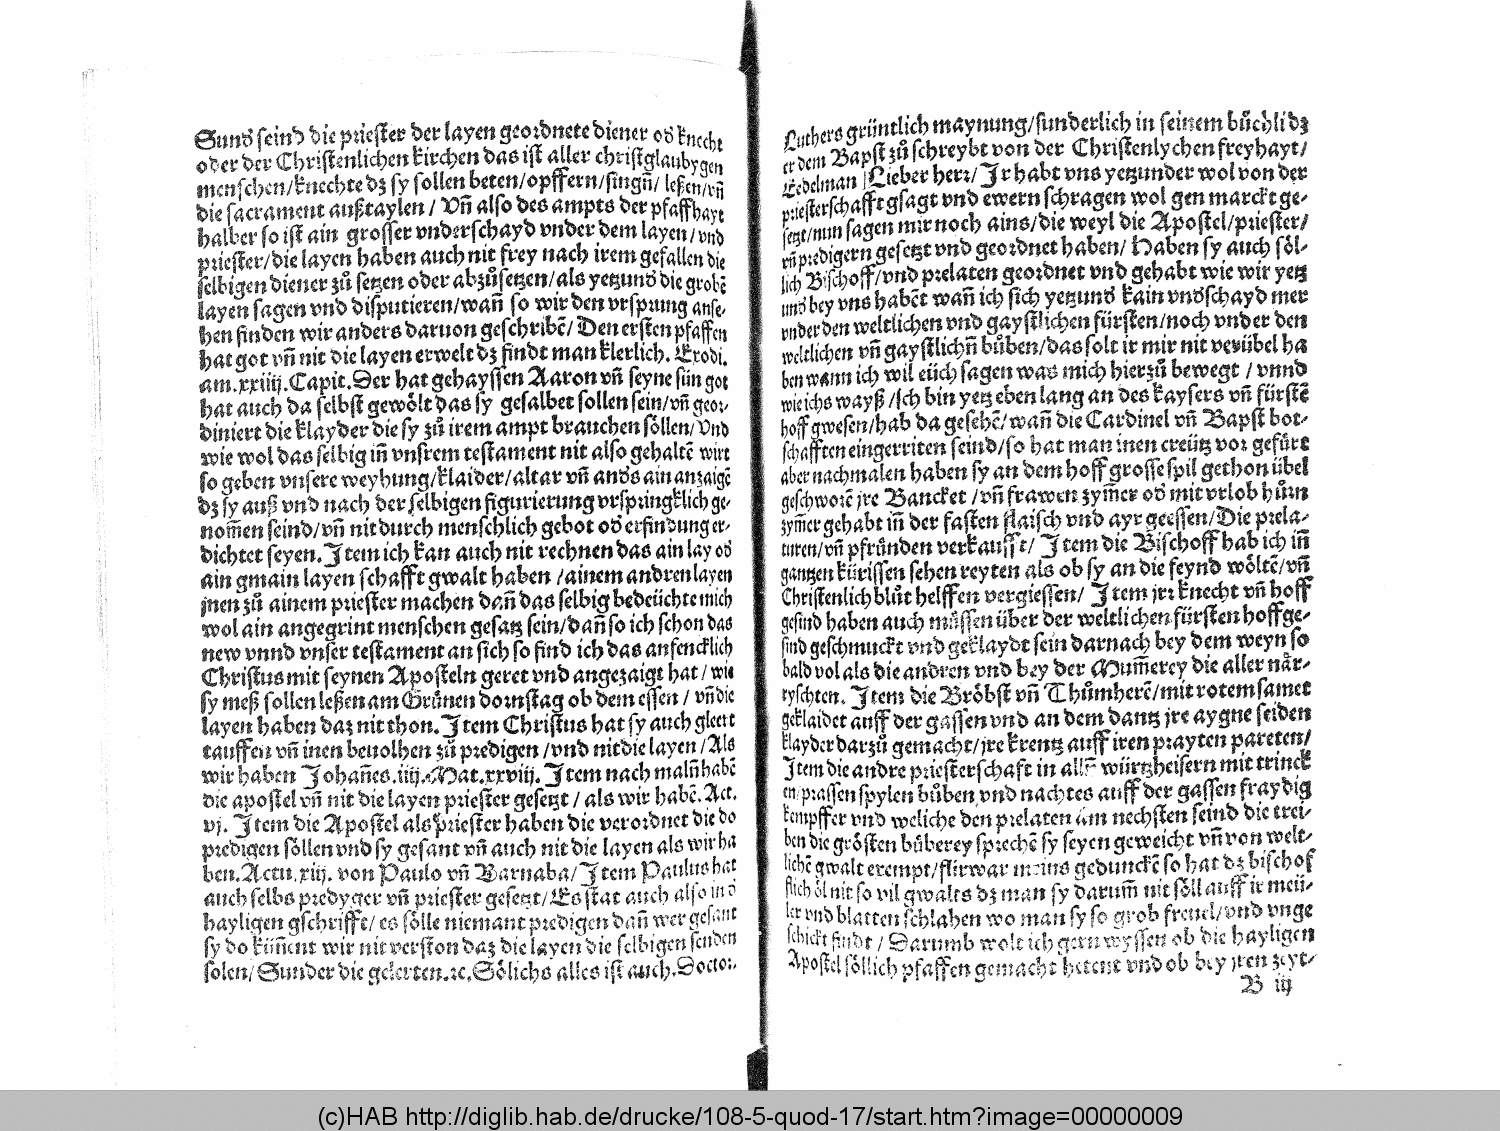 Sund seind die priester der layen geordnete diener od knecht
oder der Christenlichen kirchen das ist aller christglaubygen
menschen/knechte dz sy sollen beten/opffern/singñ/ leßen/vñ
die sacrament außtaylen / Vñ also des ampts der pfaffhayt
halber so ist ain grosser vnderschayd vnder dem layen/vnd
priester/die layen haben auch nit frey nach irem gefallen die
selbigen diener zů setzen oder abzůsetzen/als yetzund die grobẽ
layen sagen vnd disputieren/wañ so wir den vrsprung anse-
hen finden wir anders daruon geschribẽ/ Den ersten pfaffen
hat got vñ nit die layen erwelt dz findt man klerlich. Exodi.
am.xxiiij.Capit.Der hat gehayssen Aaron vñ seyne sün got
hat auch da selbst gewölt das sy gesalbet sollen sein/vñ geor-
diniert die klayder die sy zů irem ampt brauchen söllen/Vnd
wie wol das selbig iñ vnsrem testament nit also gehaltẽ wirt
so geben vnsere weyhung/klaider/altar vñ anders ain anzaigẽ
dz sy auß vnd nach der selbigen figurierung vrspringklich ge-
nom̃en seind/vñ nit durch menschlich gebot od erfindung er-
dichtet seyen. Item ich kan auch nit rechnen das ain lay od
ain gmain layen schafft gwalt haben /ainem andren layen
jnen zů ainem priester machen dañ das selbig bedeüchte mich
wol ain angegrint menschen gesatz sein/dañ so ich schon das
new vnnd vnser testament an sich so find ich das anfencklich
Christus mit seynen Aposteln geret vnd angezaigt hat / wie
sy meß sollen leßen am Grůnen dornstag ob dem essen / vñ die
layen haben daz nit thon. Item Christus hat sy auch gleert
tauffen vñ inen beuolhen zů predigen /vnd nit die layen /Als
wir haben Johañes.iiij.Mat.xxviij. Item nach malñ habẽ
die apostel vñ nit die layen priester gesetzt / als wir habẽ. Act.
vj. Item die Apostel als priester haben die verordnet die do
predigen söllen vnd sy gesant vñ auch nit die layen als wir ha
ben.Actu.xiij. von Paulo vñ Barnaba/Item Paulus hat
auch selbs predyger vñ priester gesetzt/Es stat auch also in ð
hayligen gschrifft/ es sölle niemant predigen dañ wer gesant
sy do küñent wir nit verston daz die layen die selbigen senden
solen/ Sunder die gelerten.ꝛc.Sölichs alles ist auch.Doctor-
Luthers grüntlich maynung/sunderlich in seinem bůchli dz
er dem Bapst zů schreybt von der Christenlychen freyhayt/
Eedelman / Lieber herꝛ/Ir habt vns yetzunder wol von der
priesterschafft gsagt vnd ewern schragen wol gen marckt ge-
setzt/nun sagen mir noch ains/die weyl die Apostel/priester/
vñ predigern gesetzt vnd geordnet haben/ Haben sy auch söl-
lich Bischoff/vnd prelaten geordnet vnd gehabt wie wir yetz
und bey vns habẽt wañ ich sich yetzund kain vndschayd mer
vnder den weltlichen vnd gaystlichen fürsten/noch vnder den
weltlichen vñ gaystlichñ bůben/das solt ir mir nit verübel ha
ben wann ich wil eüch sagen was mich hierzů bewegt / vnnd
wie ichs wayß /Ich bin yetz eben lang an des kaysers vñ fürstẽ
hoff gwesen/hab da gesehẽ/wañ die Cardinel vñ Bapst bot-
schafften eingerriten seind/so hat man inen creütz vor gefürt
aber nachmalen haben sy an dem hoff grosse spil gethon übel
geschworẽ jre Bancket /vñ frawen zym̃er od mit vrlob hůrn
zym̃er gehabt iñ der fasten flaisch vnd ayr geessen/Die prela-
turen/vñ pfrůnden verkaufft/ Item die Bischoff hab ich iñ
gantzen kürissen sehen reyten als ob sy an die feynd wöltẽ/vñ
Christenlich blůt helffen vergiessen/ Item jrꝛ knecht vñ hoff
gesind haben auch můssen über der weltlichen fürsten hoffge-
sind geschmuckt vnd geklaydt sein darnach bey dem weyn so
bald vol als die andren vnd bey der Mum̃erey die aller när-
ryschten. Item die Bröbst vñ Thůmherẽ/mit rotem samet
geklaidet auff der gassen vnd an dem dantz jre aygne seiden
klayder darzů gemacht/jre krentz auff iren prayten pareten/
Item die andre priesterschaft in allẽ würtzheisern mit trinck
en/prassen spylen bůben vnd nachtes auff der gassen fraydig
kempffer vnd weliche den prelaten am nechsten seind die trei-
ben die grösten bůberey sprechẽ sy seyen geweicht vñ von welt-
lichẽ gwalt exempt/fürwar meins gedunckẽ so hat dz bischof
flich öl nit so vil gwalts dz man sy darum̃ nit söll auff ir meü-
ler vnd blatten schlahen wo man sy so grob freuel/vnd vnge
schickt findt / Darumb wolt ich gern wyssen ob die hayligen
Apostel söllich pfaffen gemacht hetent vnd ob bey jren zeyt-
B iij
(c)HAB http://diglib.hab.de/drucke/108-5-quod-17/start.htm?image=00000009